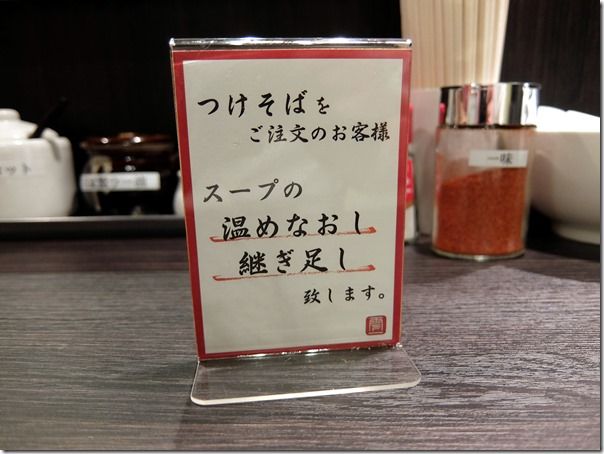 つけそばを
ご注文のお客様
スープの
温めなおし
継ぎ足し
致します。
一味